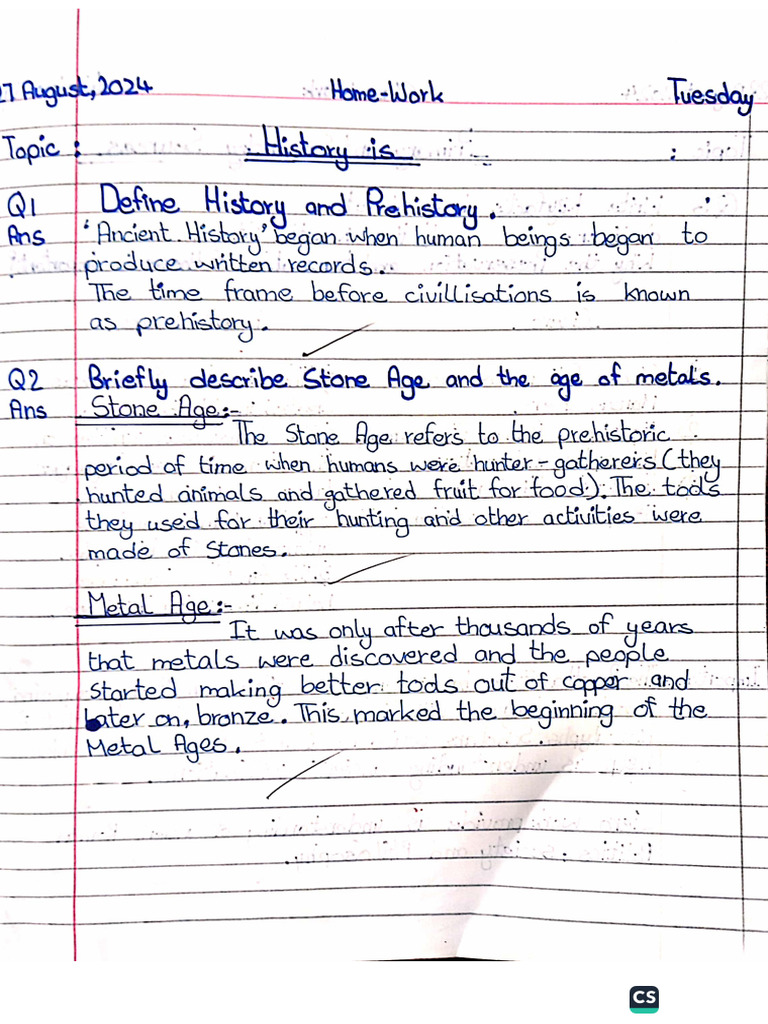 27 August, 2024 Home-Work Tuesday
Topic : History is :
Q1 Define History and Prehistory.
Ans 'Ancient History' began when human beings began to
produce written records.
The time frame before civillisations is known
as prehistory.
Q2 Briefly describe Stone Age and the age of metals.
Ans Stone Age:-
The Stone Age refers to the prehistoric
period of time when humans were hunter-gatherers (they
hunted animals and gathered fruit for food.). The tools
they used for their hunting and other activities were
made of Stones.
Metal Age:-
It was only after thousands of years
that metals were discovered and the people
started making better tools out of copper and
later on, bronze. This marked the beginning of the
Metal Ages.
CS